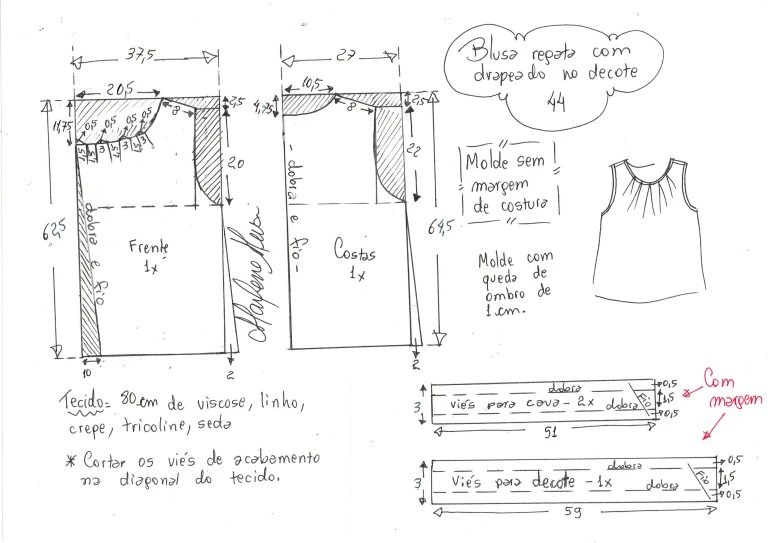 Blusa regata com
drapeado no decote
44
37,5
20,5
11,75
0,5 0,5 0,5 0,5
3
3
8
2,5
20
62,5
dobra e fio
Frente
1x
10
2
27
10,5
4,75
8
2,5
22
64,5
- dobra e fio -
Costas
1x
2
Molde sem
margem
de costura
Molde com
queda de
ombro de
1 cm.
Tecido = 80 cm de viscose, linho,
crepe, tricoline, seda
* Cortar os viés de acabamento
na diagonal do tecido.
dobra
viés para cava - 2x dobra
Fio
3
0,5
1,5
0,5
51
* Com
margem
*
dobra
Viés para decote - 1x dobra
Fio
3
0,5
1,5
0,5
59